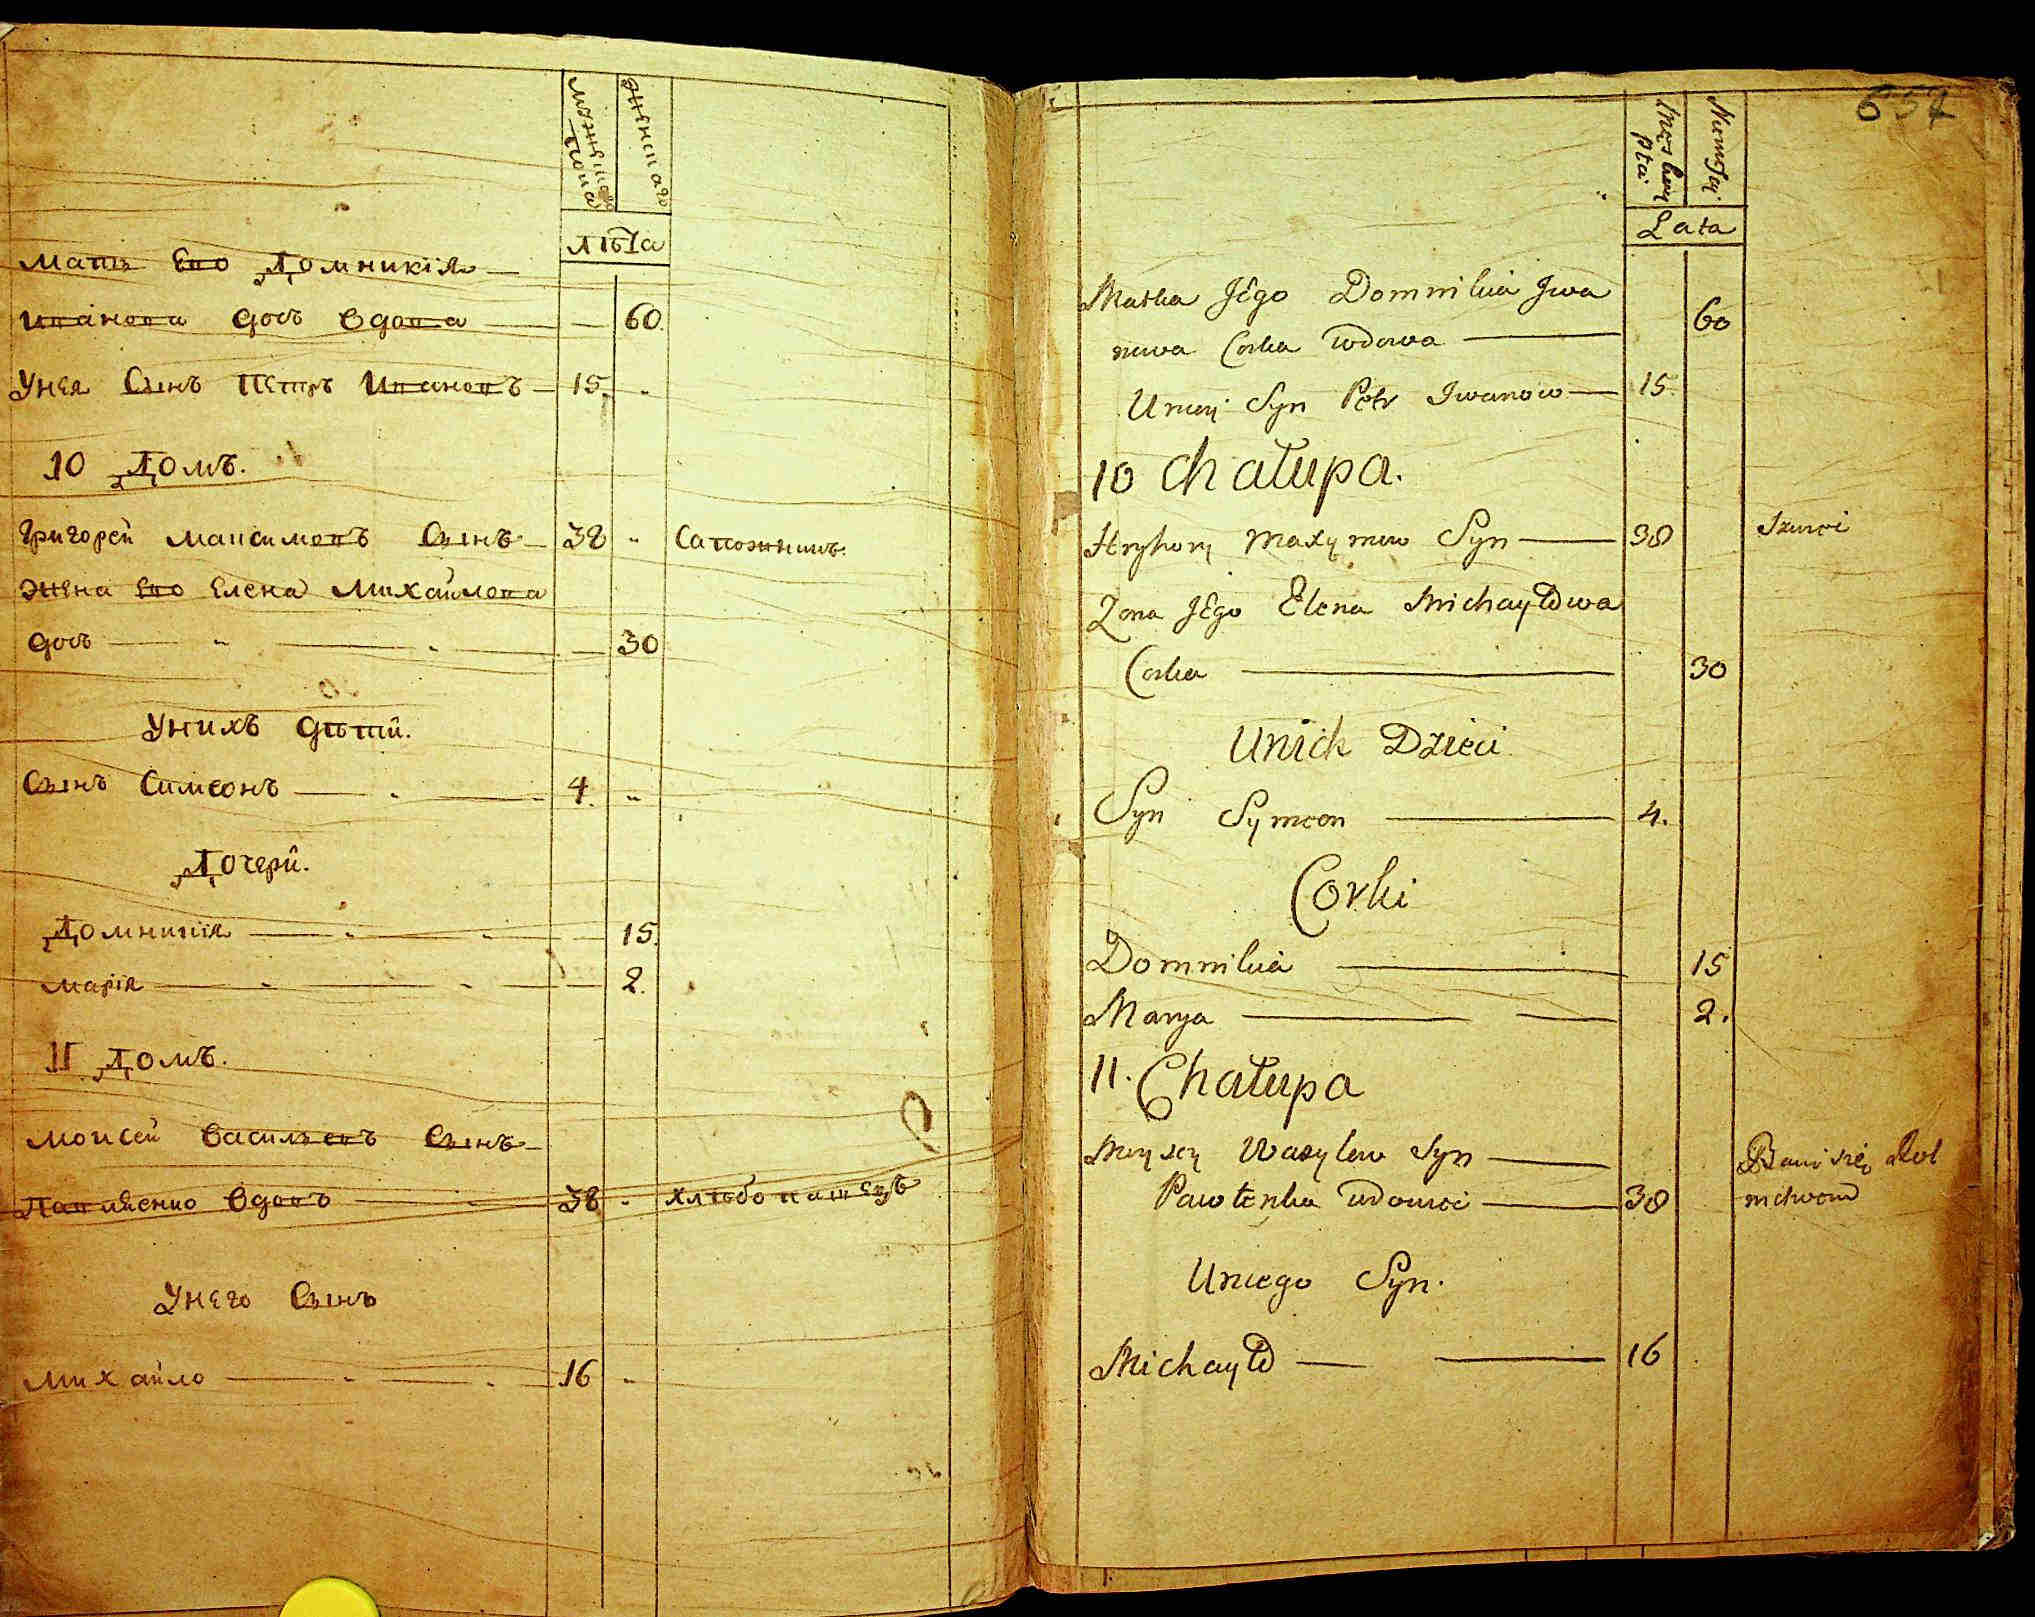 мужеска пола
женскаго
лѣта
мать Его Домникія
иванова дочъ вдова 60.
Унея Сынъ петръ Ивановъ 15.
10 Домъ.
григорей максимовъ Сынъ 38 Сапожникъ.
жена Его Елена михайлова
дочъ 30
Унихъ дѣтей.
Сынъ Симеонъ 4.
Дочерей.
Домникія 15.
марія 2.
11 Домъ.
моисей васильевъ Сынъ
Павленко вдовъ 38 хлѣбопашецъ
Унего Сынъ
михайло 16
657
Męskey Płci
Lata
Matka JEgo Domnikia Jwa
nowa Corka wdowa 60
Uniey Syn Petr Iwanow 15.
10 Chałupa.
Hryhory Maxymow Syn 38 Szwiec
Zona JEgo Elena Michayłowa
Corka 30
Unich Dzieci
Syn Symeon 4.
Corki
Domnikia 15
Marya 2.
11. Chałupa
Moysey Wasylew Syn Bawi się Rol
Pawlenko wdowiec 38 nictwem
Uniego Syn.
Michayło 16